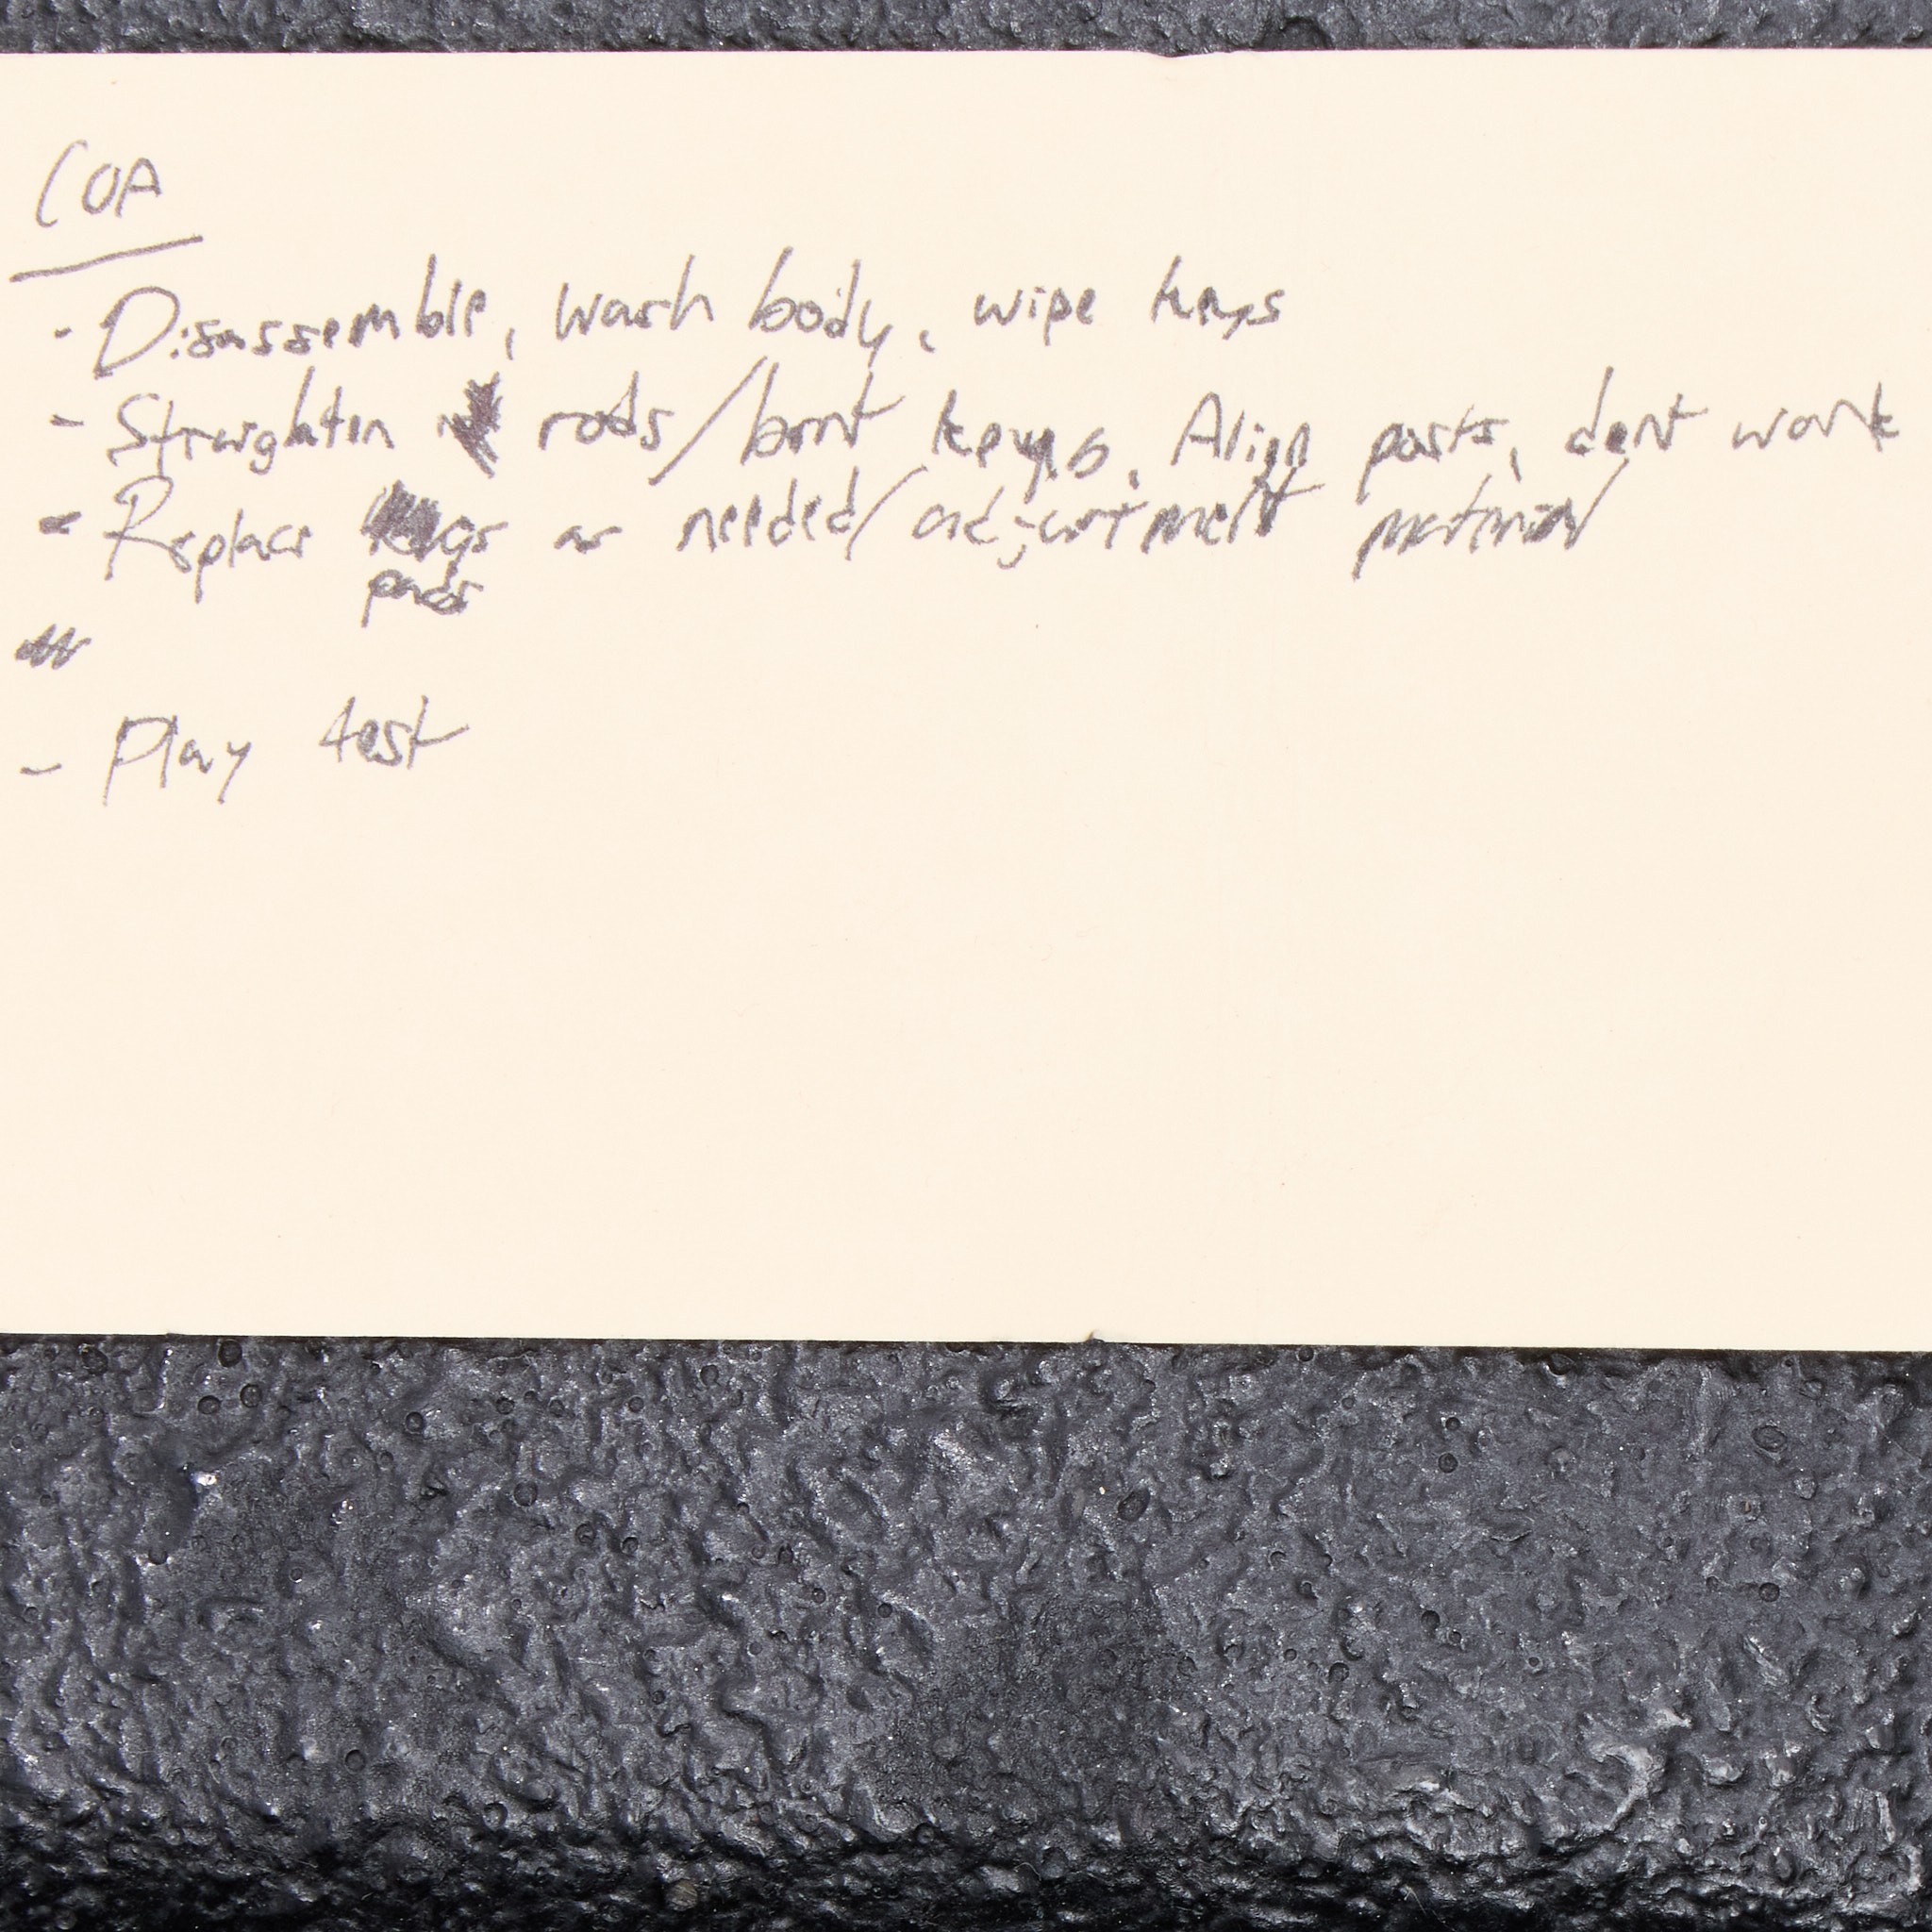 COA
- Disassemble, wash body, wipe keys
- Straighten rods/bent keys, Align posts, dent work
- Replace as needed/adjustment material
pads
- Play test